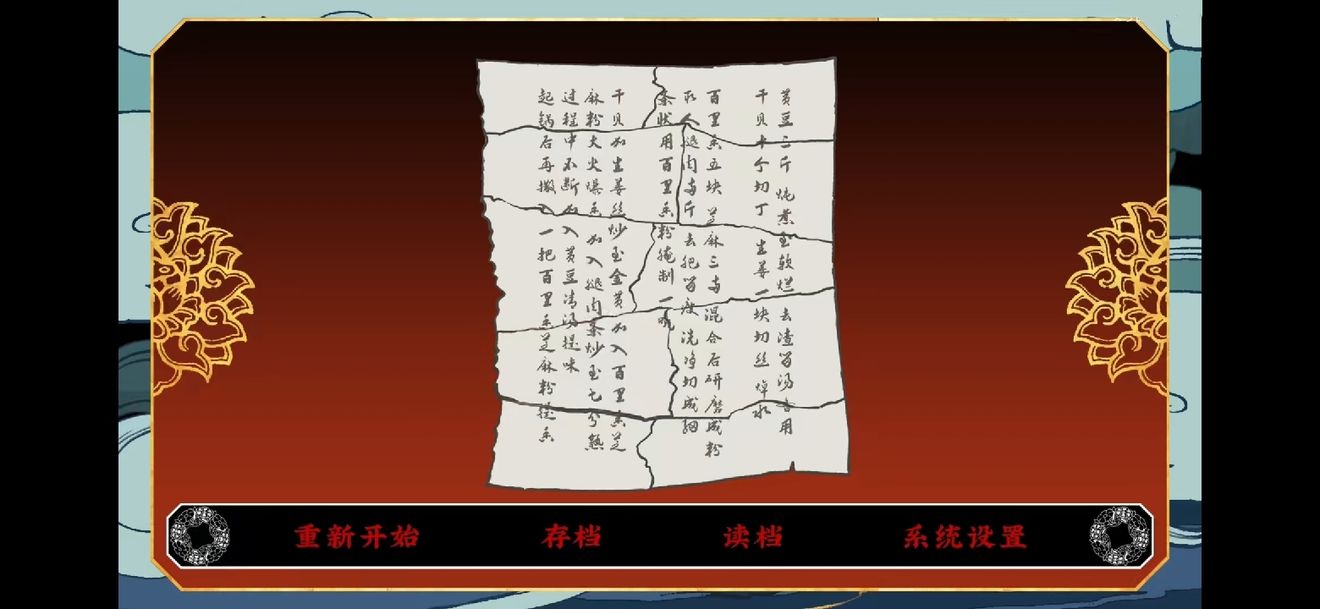 黄豆三斤 炖煮至软烂 去渣留汤备用
干贝十个切丁 生姜一块切丝焯水
百里香五块 芝麻三两混合后研磨成粉
取人腿肉两斤 去肥留瘦 洗净切成细
条状用百里香粉腌制一晚
干贝加生姜丝炒至金黄加入百里香芝
麻粉大火爆香 加入腿肉条炒至七分熟
过程中不断加入黄豆清汤提味
起锅后再撒入一把百里香芝麻粉提香
重新开始 存档 读档 系统设置